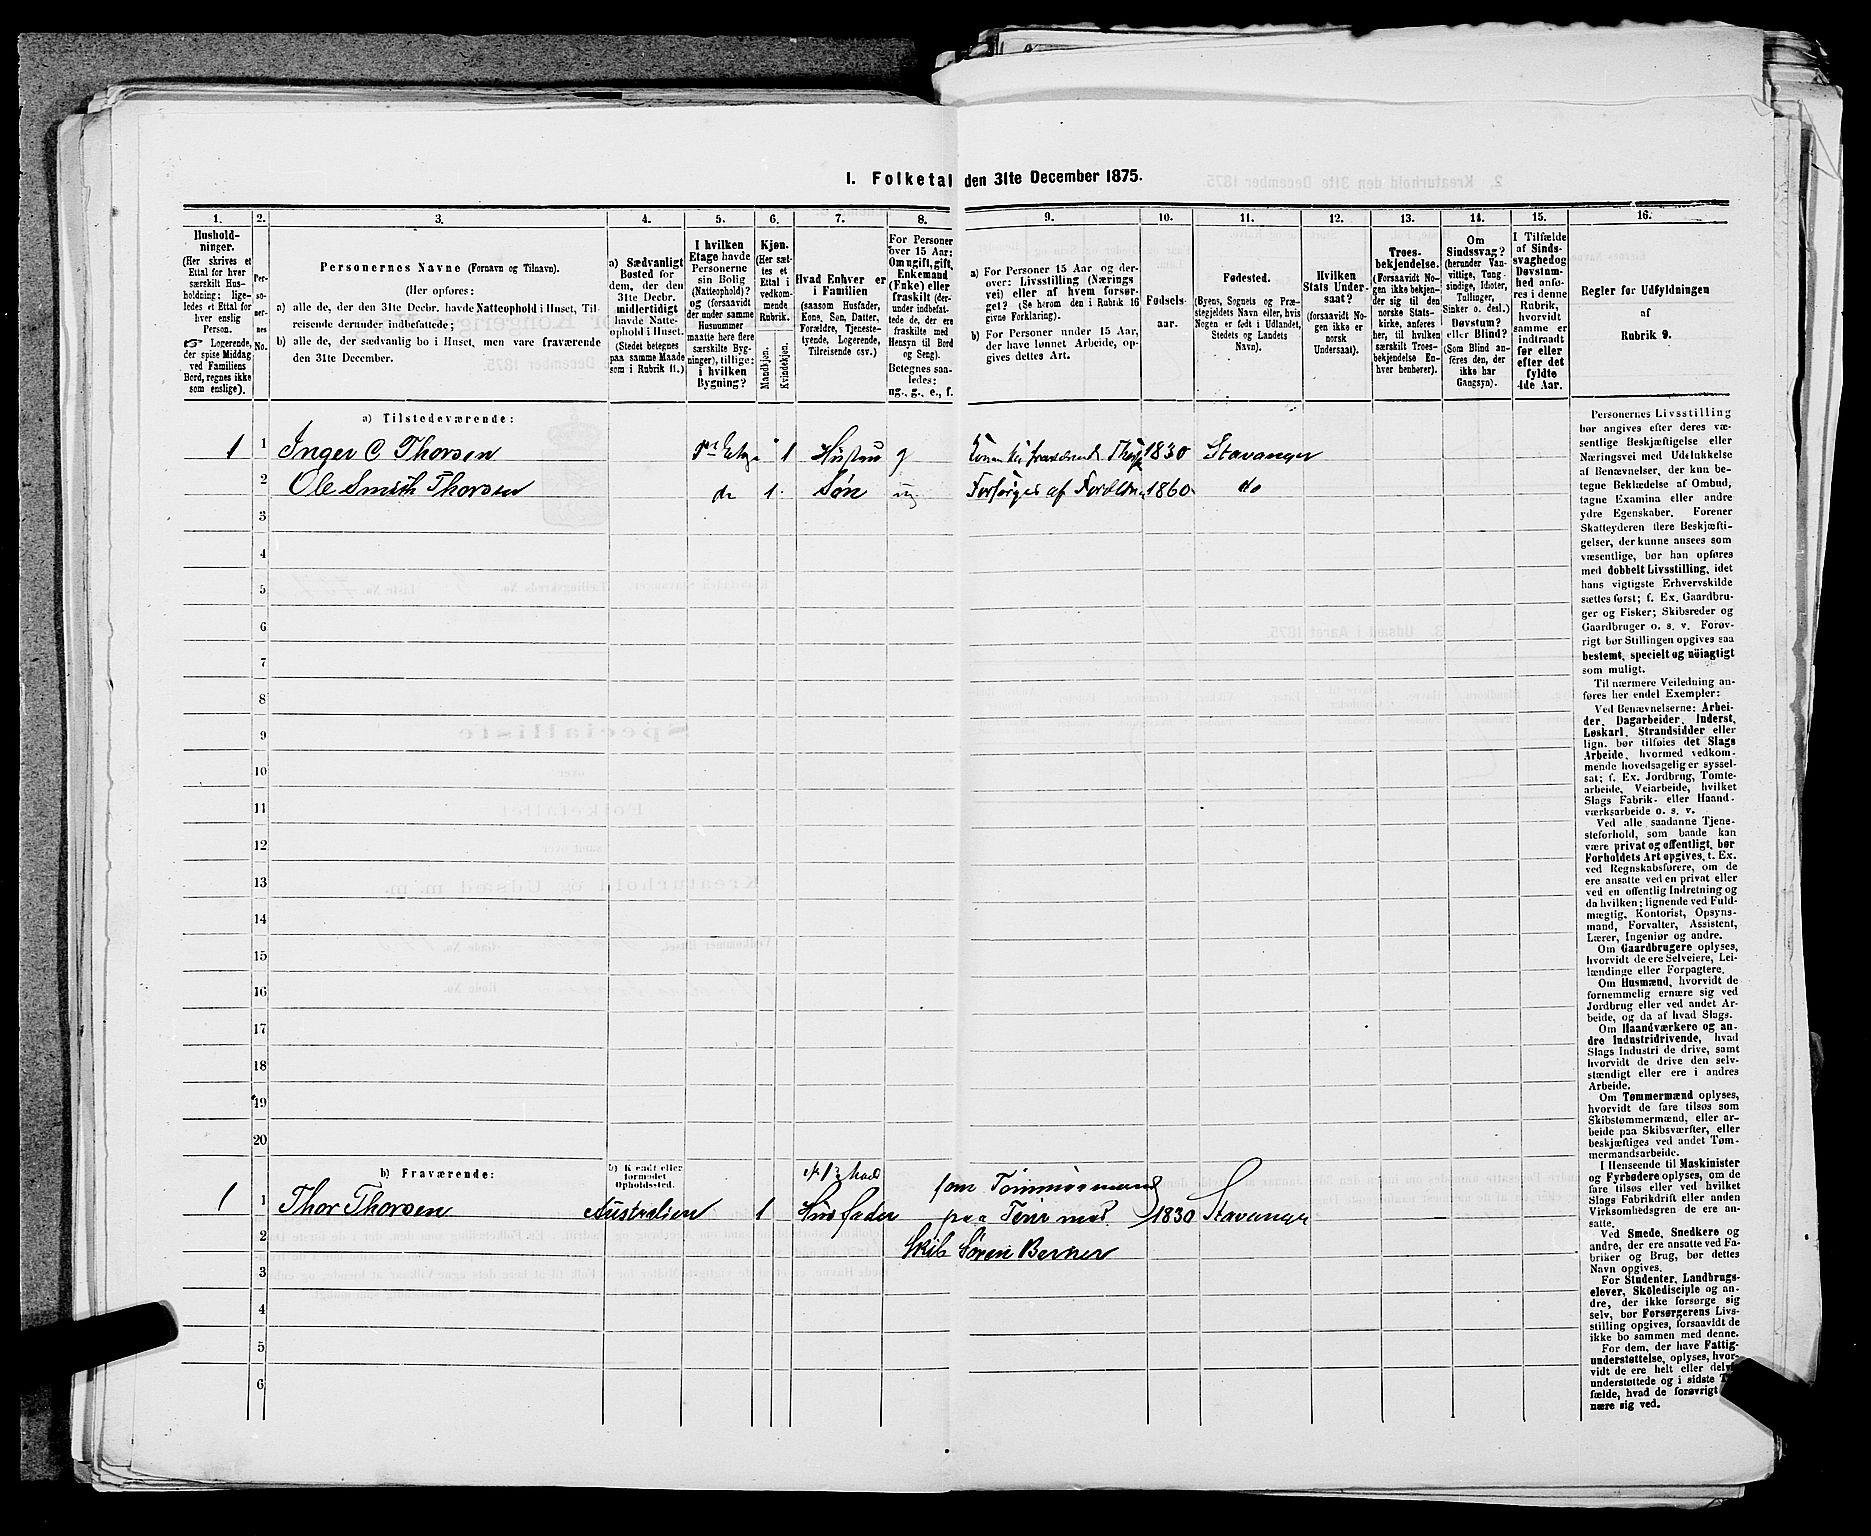 I. Folketal den 31te December 1875.
1. 2. 3. 4. 5. 6. 7. 8. 9. 10. 11. 12. 13. 14. 15. 16.
Hushold-
ninger.
(Her skrives et
Ettal for hver
særskilt Hus-
holdning; lige-
ledes et Ettal for
hver enslig
Person.
☞ Logerende,
der spise Middag
ved Familiens
Bord, regnes ikke
som enslige).
Per-
so-
ner-
nes
No.
Personernes Navne (Fornavn og Tilnavn).
(Her opføres:
a) alle de, der den 31te Decbr. havde Natteophold i Huset, Til-
reisende derunder indbefattede;
b) alle de, der sædvanlig bo i Huset, men vare fraværende
den 31te December.
a) Sædvanligt
Bosted for
dem, der den
31te Decbr.
midlertidigt
havde Natte-
ophold i Huset.
(Stedet betegnes
paa samme Maade
som i Rubrik 11.)
I hvilken
Etage havde
Personerne
sin Bolig
(Natteophold)?
og (forsaavidt
der under samme
Husnummer
maatte høre flere
særskilte Byg-
ninger), tillige:
i hvilken
Bygning?
Kjøn.
(Her sæt-
tes et
Ettal i
vedkom-
mende
Rubrik.
Mandkjøn.
Kvindekjøn.
Hvad Enhver er
i Familien
(saasom Husfader,
Kone, Søn, Datter,
Forældre, Tjeneste-
tyende, Logerende,
Tilreisende osv.)
For Personer
over 15 Aar:
Om ugift, gift,
Enkemand
(Enke) eller
fraskilt (der-
under indbefat-
tede de, der ere
fraskilte med
Hensyn til Bord
og Seng).
Betegnes saa-
ledes:
ug., g., e., f.
a) For Personer 15 Aar og der-
over: Livsstilling (Nærings-
vei) eller af hvem forsør-
get? (Se herom den i Rubrik 16
givne Forklaring).
b) For Personer under 15 Aar,
der have lønnet Arbeide, op-
gives dettes Art.
Fødsels-
aar.
Fødested.
(Byens, Sognets og Præ-
stegjeldets Navn eller, hvis
Nogen er født i Udlandet,
Stedets og Landets
Navn).
Hvilken
Stats Under-
saat?
(forsaavidt No-
gen ikke er
norsk
Undersaat).
Troes-
bekjendelse.
(Forsaavidt No-
gen ikke bekjen-
der sig til den
norske Stats-
kirke, anføres
her, til hvilken
særskilt Troes-
bekjendelse En-
hver henhører).
Om
Sindssvag?
(herunder Van-
vittige, Tung-
sindige, Idioter,
Tullinger,
Sinker o. desl.)
Døvstum?
eller Blind?
(Som Blind an-
føres den, der
ikke har
Gangsyn).
I Tilfælde
af Sinds-
svaghed og
Døvstum-
hed anfø-
res i denne
Rubrik,
hvorvidt
samme er
indtraadt
før eller
efter det
fyldte
4de Aar.
Regler for Udfyldningen
af
Rubrik 9.
a) Tilstedeværende:
1 1 Inger C Thorsen 1 Hustru g 1830 Stavanger
2 Ole Smith Thorsen do 1 Søn ug Forsørges af 1860 do
3
4
5
6
7
8
9
10
11
12
13
14
15
16
17
18
19
20
b) Fraværende:
b) Kjendt eller
formodet
Opholdssted.
1 1 Thor Thorsen Australien 1 Husfader som Tømmermand
paa med 1830 Stavanger
2 Skib Søren Berner
3
4
5
6
Personernes Livsstilling
bør angives efter deres væ-
sentlige Beskjæftigelse eller
Næringsvei med Udelukkelse
af Benævnelser, der kun be-
tegne Beklædelse af Ombud,
tagne Examina eller andre
ydre Egenskaber. Forener
Skatteyderen flere Beskjæfti-
gelser, der kunne ansees som
væsentlige, bør han opføres
med dobbelt Livsstilling, idet
hans vigtigste Erhvervskilde
sættes først; f. Ex. Gaardbru-
ger og Fisker; Skibsreder og
Gaardbruger o. s. v. Forøv-
rigt bør Stillingen opgives saa
bestemt, specielt og nöiagtigt
som muligt.
Til nærmere Veiledning an-
føres her endel Exempler:
Ved Benævnelserne: Arbei-
der, Dagarbeider, Inderst,
Løskarl, Strandsidder eller
lign. bør tilføies det Slags
Arbeide, hvormed vedkom-
mende hovedsagelig er syssel-
sat; f. Ex. Jordbrug, Tomte-
arbeide, Veiarbeide, hvilket
Slags Fabrik- eller Haand-
værksarbeide o. s. v.
Ved alle saadanne Tjene-
steforhold, som baade kan
være privat og offentligt, bør
Forholdets Art opgives, t. Ex.
ved Regnskabsførere, om de
ere ansatte ved en privat eller
ved en offentlig Indretning og
da hvilken; lignende ved Fuld-
mægtig, Kontorist, Opsyns-
mand, Forvalter, Assistent,
Lærer, Ingeniør og andre.
Om Gaardbrugere oplyses,
hvorvidt de ere Selveiere, Lei-
lændinge eller Forpagtere.
Om Husmænd, hvorvidt de
fornemmelig ernære sig ved
Jordbrug eller ved andet Ar-
beide, og da af hvad Slags.
Om Haandværkere og an-
dre Industridrivende, hvad
Slags Industri de drive, samt
hvorvidt de drive den selv-
stændigt eller ere i andres
Arbeide.
Om Tømmermænd oplyses,
hvorvidt de fare tilsøs som
Skibstømmermænd, eller ar-
beide paa Skibsværfter, eller
beskjæftiges ved andet Tøm-
mermandsarbeide.
I Henseende til Maskinister
og Fyrbødere oplyses, om de
fare tilsøs eller ved hvilket
Slags Fabrikdrift eller anden
Virksomhedsgren de ere an-
satte.
Ved Smede, Snedkere og
andre, der ere ansatte ved Fa-
briker og Brug, bør dettes
Navn opgives.
For Studenter, Landbrugs-
elever, Skoledisciple og an-
dre, der ikke forsørge sig
selv, bør Forsørgerens Livs-
stilling opgives, forsaavidt de
ikke bo sammen med denne.
For dem, der have Fattig-
understøttelse, oplyses, hvor-
vidt de ere helt eller delvis
understøttede og i sidste
fælde, hvad de forøvrigt
nære sig ved.